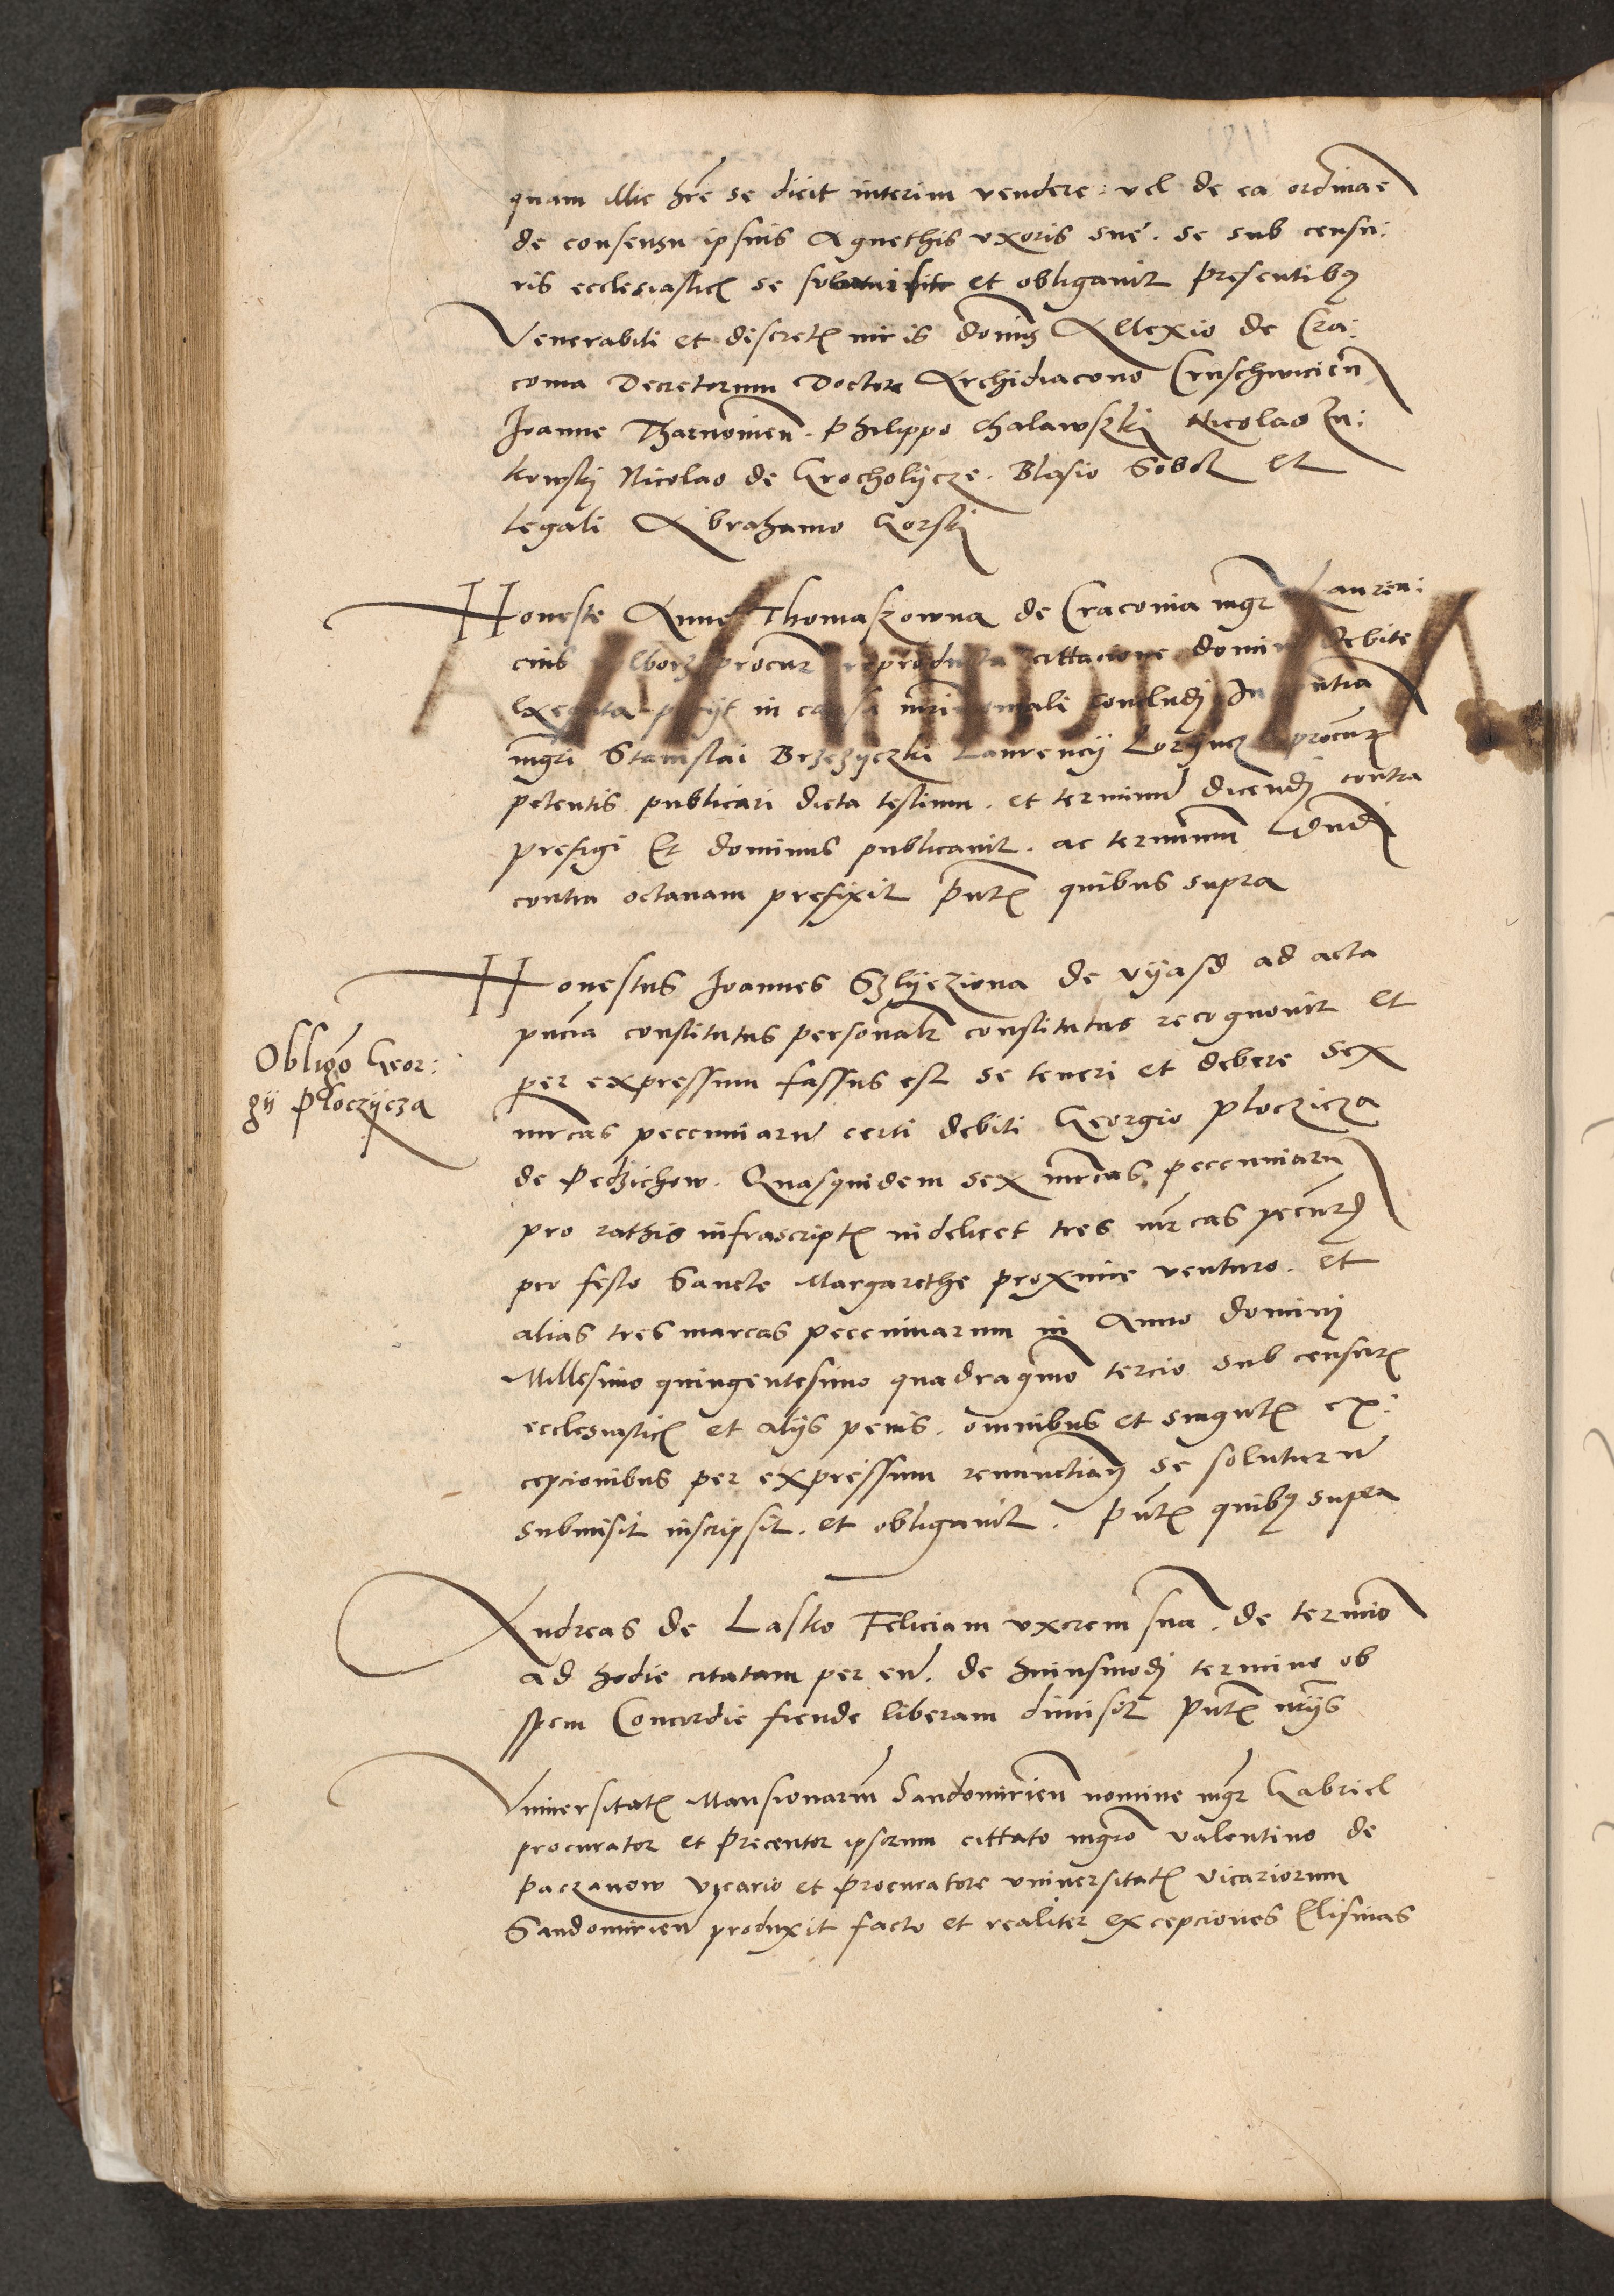 quam illic hre se dicit interim vendere vel de ea ordinare
de consensu ipsius Agnethis uxoris sue. se sub censu:
ris ecclesiastic se submisit et obligavit presentibus
Venerabili et discret viris dominis Allexio de Cra:
covia Decretorum Doctore Archidiacono Cruschwicien
Joanne Tharnowien. Philippo Chalawszki Nicolao Zu:
kowskij Nicolao de Grocholijcze. Blasio Sobol et
legali Abrahamo Gorskij
Honeste Anne Thomaszowna de Cracovia mgr Lauren:
cius procur reproducta cittacione domini debite
executa petijt in causa mrimoniali concludj In
mgri Stanislai Brzezyczki Laurencij procur
petentis publicari dicta testium. et terminum dicendj contra
prefigi Et dominus publicavit. ac terminum dicendj
contra octavam prefixit pntibus quibus supra
Honestus Joannes Szlyeziona de vyasd ad acta
pncia constitutus personalr constitutus recognovit et
per expressum fassus est se teneri et debere sex
mrcas peccuniarum certi debiti Georgio ploczicza
de Pedzichow. Quasquidem sex mrcas peccuniaru
pro rathis infrascript videlicet tres mrcas pecunr
pro festo Sancte Margarethe proxime venturo. et
alias tres marcas peccuniarum in Anno dominj
Millesimo quingentesimo quadragimo tercio sub censur
ecclesiastic et alijs penis. omnibus et singul ex:
cepcionibus per expressum renuncians se soluturum
submisit inscripsit. et obligavit. pnt quibus supra
Obligo Geor:
gij Ploczycza
Andreas de Lasko Feliciam uxorem sua. de termino
ad hodie citatam per eum. de huiusmodj termino ob
spem Concordie fiende liberam dimisit pnt
Vniversitat Mansionarm Sandomirien nomine mgr Gabriel
procurator et precentor ipsorum cittato mgro Valentino de
Paczanow vycario et procuratore universitat vicariorum
Sandomirien produxit facto et realiter excepciones Elisivas